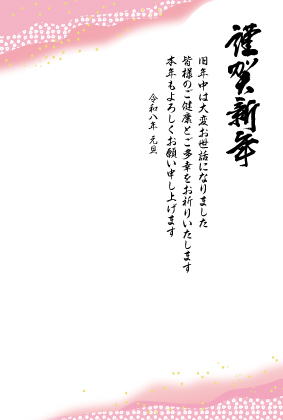 謹賀新年
旧年中は大変お世話になりました
皆様のご健康とご多幸をお祈りいたします
本年もよろしくお願い申し上げます
令和八年 元旦